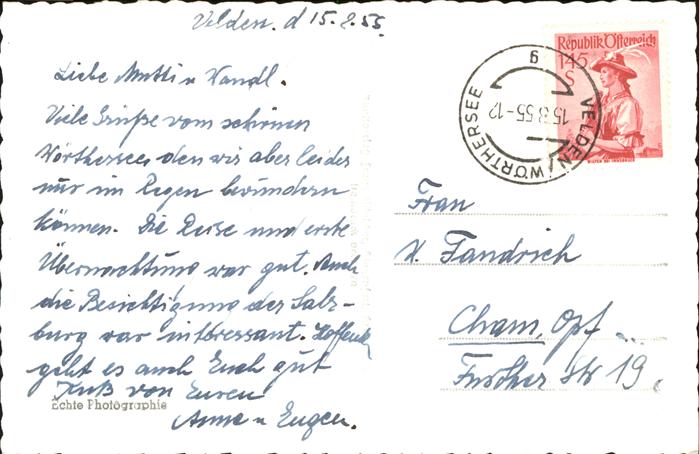 Velden. d 15.8.55
Liebe Mutti u Wandl.
Viele Grüße vom schönen
Wörthersee, den wir aber leider
nur im Regen bewundern
können. Die Reise und erste
Übernachtung war gut. Auch
die Besichtigung der Salz-
burg war interessant. Hoffentl
geht es auch Euch gut
Kuß von Euren
Anna u Eugen.
Echte Photographie
Republik Österreich
145
S
VELDEN/WÖRTHERSEE
15.8.55-12
g
Frau
Fandrich
Cham, Opf
Further Str 19